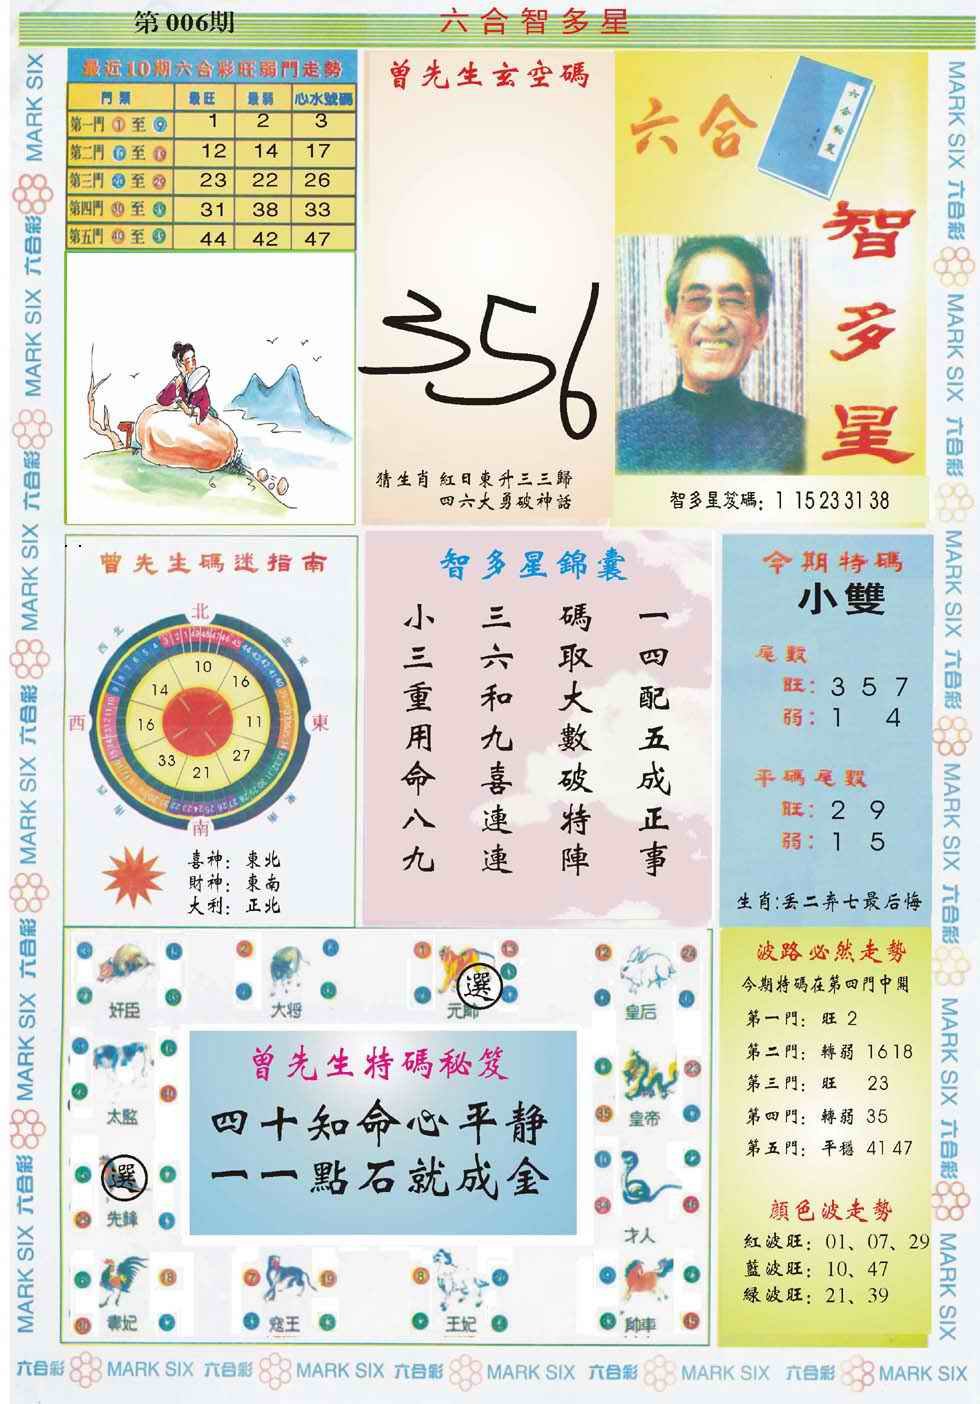 第 006期
六合智多星
最近10期六合彩旺弱門走勢
門類 最旺 最弱 心水號碼
第一門 ① 至 ⑨ 1 2 3
第二門 至 12 14 17
第三門 至 23 22 26
第四門 至 31 38 33
第五門 至 44 42 47
曾先生玄空碼
356
猜生肖 紅日東升三三歸
四六大勇破神話
六合
六合秘笈
智多星
智多星笈碼: 1 15 23 31 38
曾先生碼迷指南
北
西北
東北
西
東
南
10
16
11
27
21
33
16
14
喜神: 東北
財神: 東南
大利: 正北
智多星錦囊
一四配五成正事
碼取大數破特陣
三六和九喜連連
小三重用命八九
今期特碼
小雙
尾數
旺: 3 5 7
弱: 1 4
平碼尾數
旺: 2 9
弱: 1 5
生肖:丟二弃七最后悔
奸臣
大将
元帥
選
皇后
太監
皇帝
選
先鋒
才人
寇王
王妃
曾先生特碼秘笈
四十知命心平静
一一點石就成金
波路必然走勢
今期特碼在第四門中開
第一門: 旺 2
第二門: 轉弱 16 18
第三門: 旺 23
第四門: 轉弱 35
第五門: 平穩 41 47
顔色波走勢
紅波旺: 01、07、29
藍波旺: 10、47
緑波旺: 21、39
MARK SIX 六合彩 MARK SIX 六合彩 MARK SIX 六合彩 MARK SIX 六合彩 MARK SIX 六合彩 MARK SIX
MARK SIX 六合彩 MARK SIX 六合彩 MARK SIX 六合彩 MARK SIX 六合彩 MARK SIX 六合彩 MARK SIX
六合彩 MARK SIX 六合彩 MARK SIX 六合彩 MARK SIX 六合彩 MARK SIX 六合彩 MARK SIX